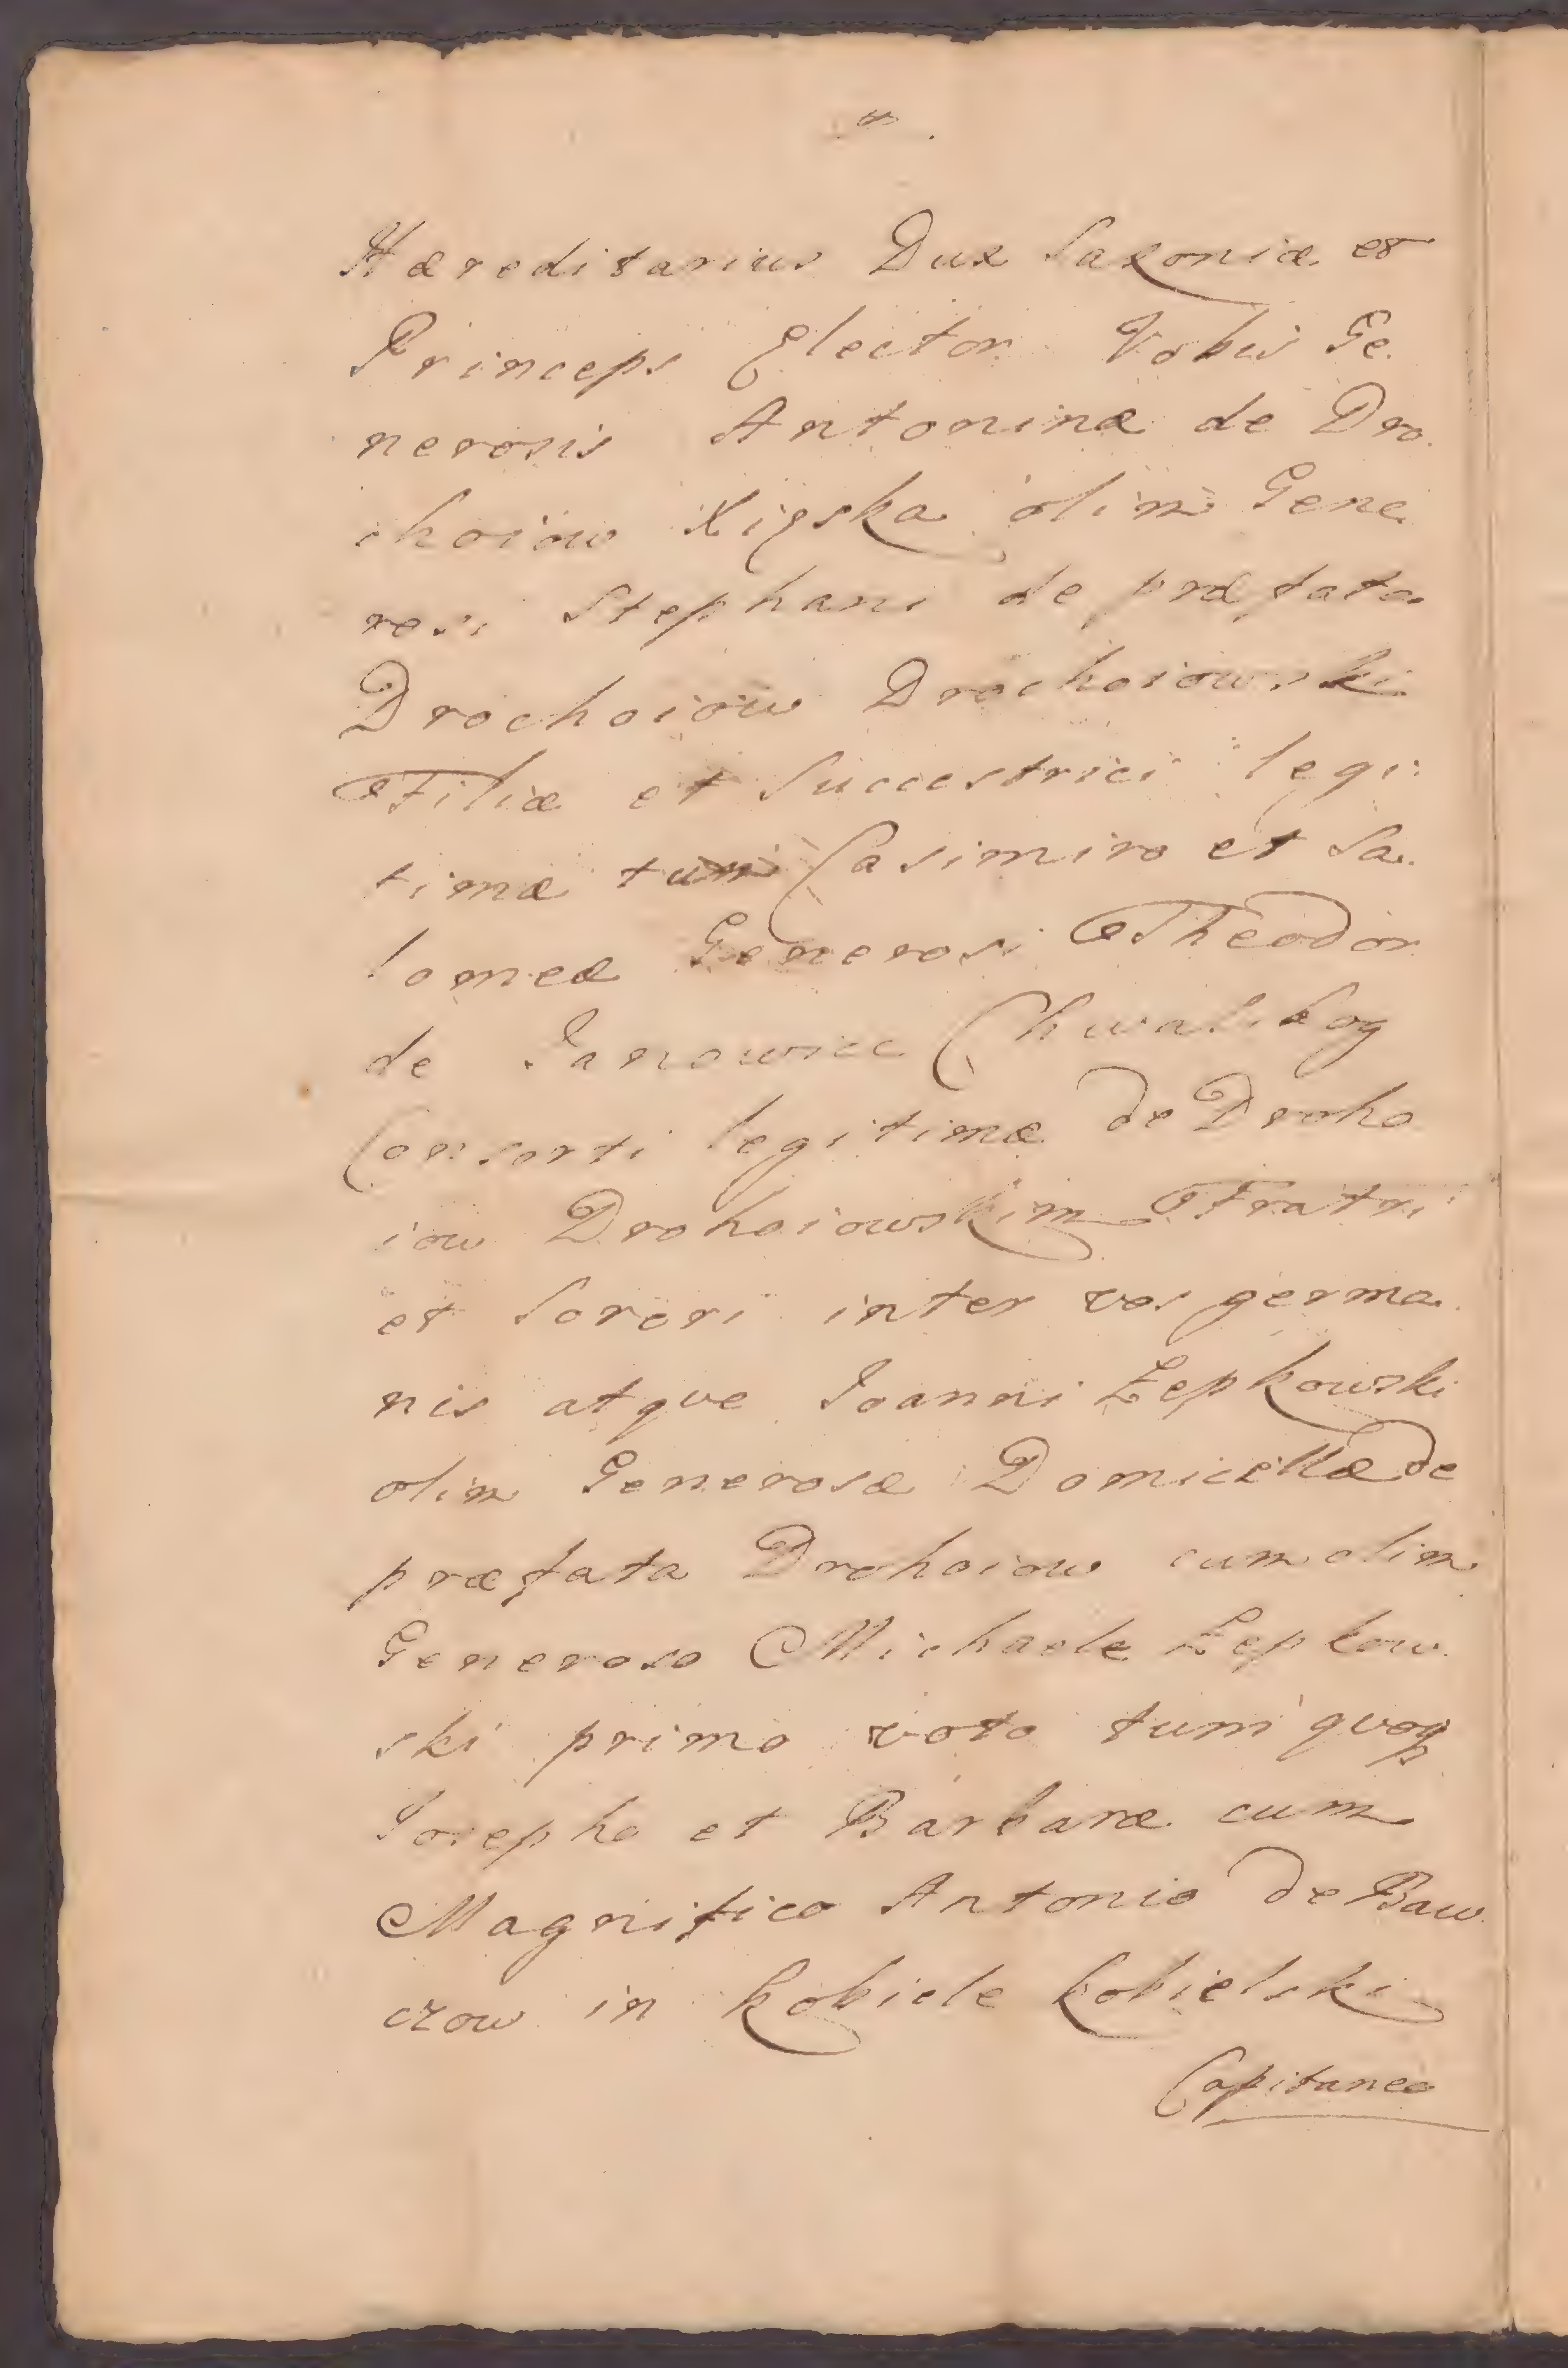 Hæreditarius Dux Saxoniæ et
Princeps Elector Vobis Ge
nerosis Antoninæ de Dro
choiow Xięska olim Gene
rosi Stephani de præfata
Drochoiow Drochoiowski
Filiæ et Successtrici legi:
timæ tum Casimiro et Sa
lomeæ Generosi Theodor
de Janowiec Chwalibog
Consorti legitimæ de Droho
iow Drohoiowskim Fratri
et Sorori inter vos germa
nis atque Joanni Łepkowski
olim Generosæ Domicellæ de
præfata Drohoiow cum olim
Generoso Michaele Łepkow
ski primo voto tum quoqȝ
Josepho et Barbaræ cum
Magnifico Antonio de Baw
czow in Kobiele Kobielski
Capitaneo